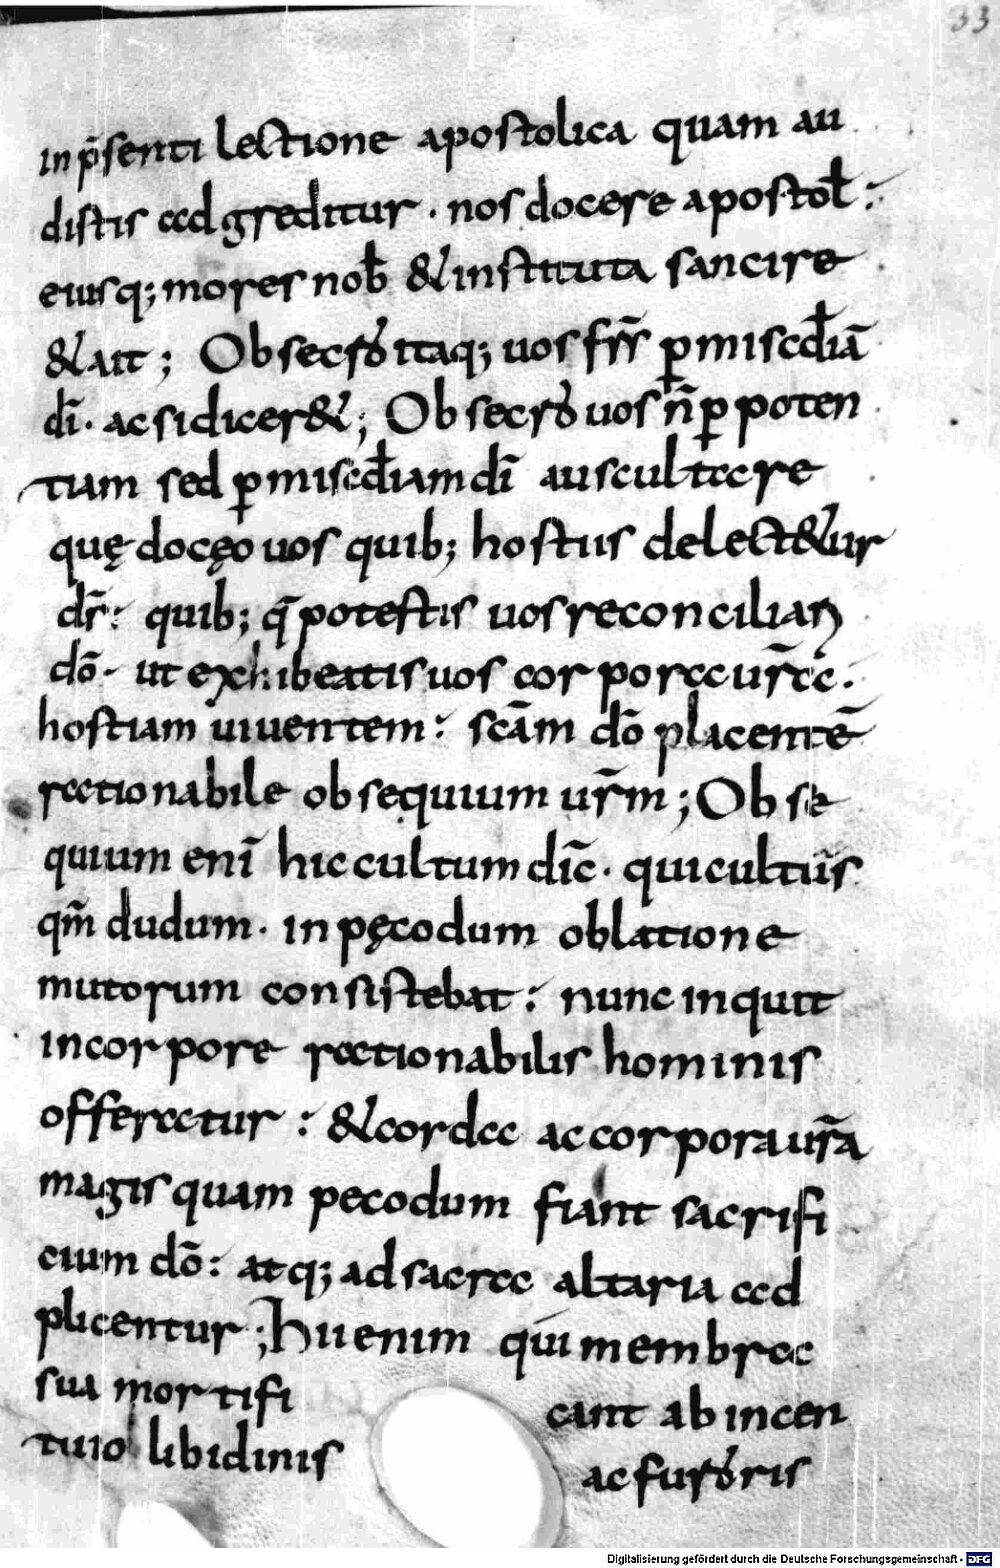 33
in p̄senti lectione apostolica quam au
distis adgreditur · nos docere apostoł :
eiusq; mores nob̄ & instituta sancire
& ait ; Obsecro itaq; uos fr̄s ꝑ misc̄diā
dī · ac si dicer& ; Obsecro uos n̄ ꝑ poten
tiam sed ꝑ misc̄diam dī auscultare
quę docęo uos quib; hostiis delect&ur
ds̄ : quib; q̄ potestis uos reconciliari
dō · ut exhibeatis uos corpora ur̄a :
hostiam uiuentem : sc̄am dō placentē
rationabile obsequium ur̄m ; Obse
quium enī hic cultum dīc · qui cultus
qm̄ dudum · in pęcodum oblatione
mutorum consistebat : nunc inquit
in corpore rationabilis hominis
offeratur : & corda ac corpora ur̄a
magis quam pecodum fiant sacrifi
cium dō : atq; ad sacra altaria ad
plicentur ; Hii enim qui membra
sua mortifi cant ab incen
tiuo libidinis ac furoris
Digitalisierung gefördert durch die Deutsche Forschungsgemeinschaft - DFG